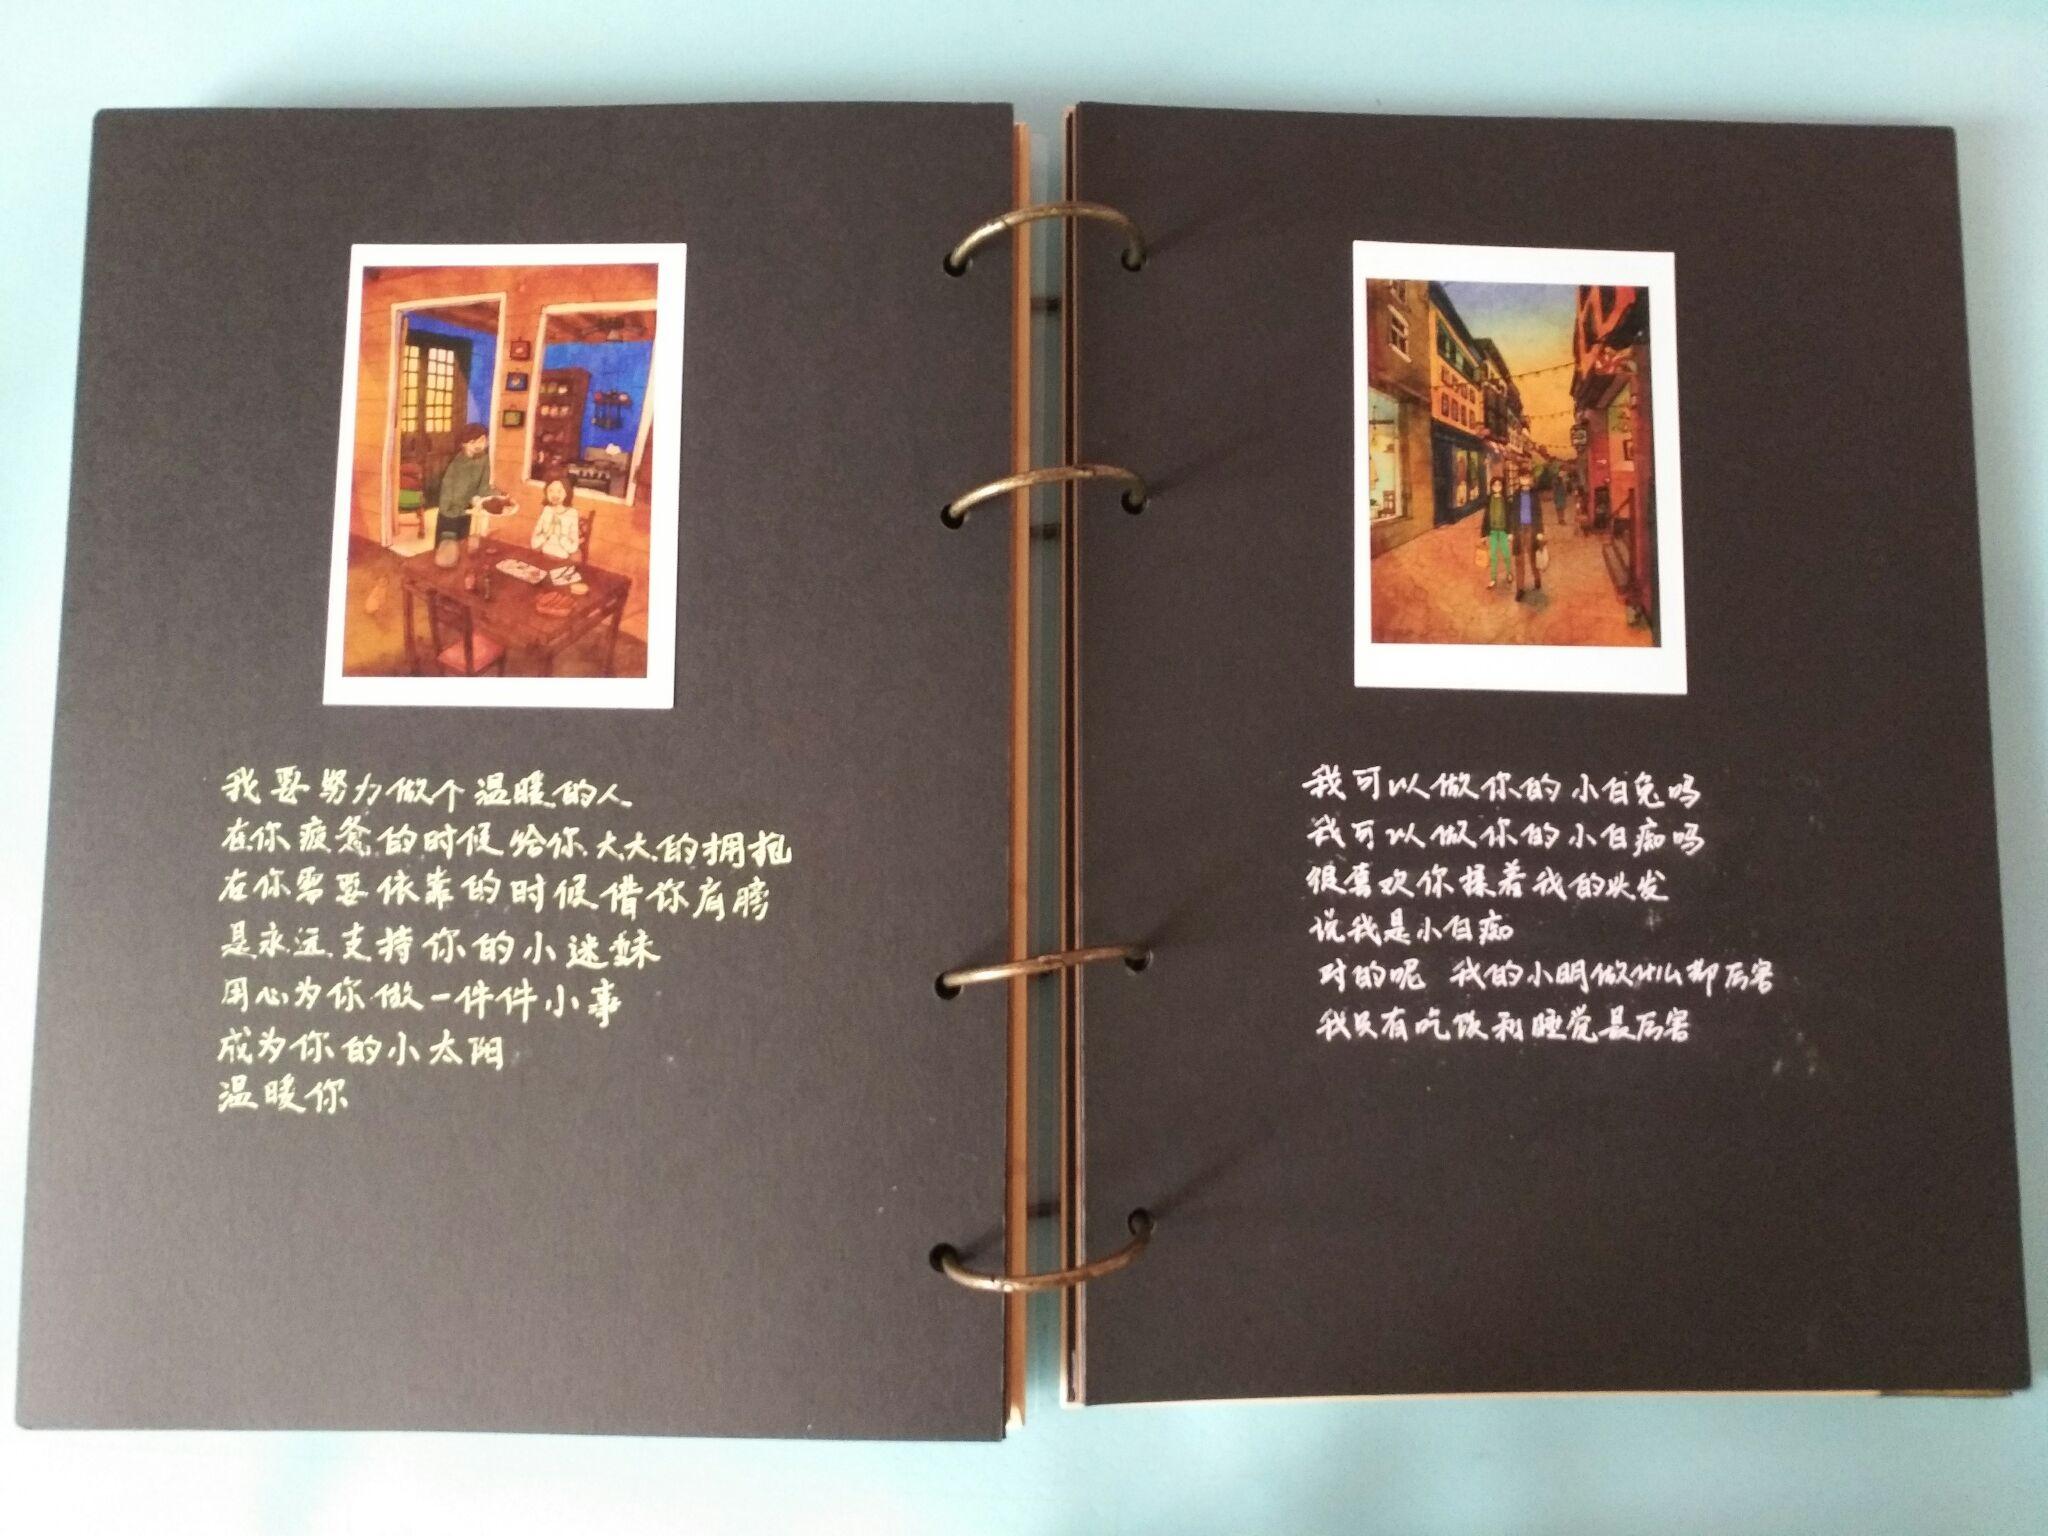 我要努力做个温暖的人
在你疲惫的时候给你大大的拥抱
在你需要依靠的时候借你肩膀
是永远支持你的小迷妹
用心为你做一件件小事
成为你的小太阳
温暖你
我可以做你的小白兔吗
我可以做你的小白痴吗
很喜欢你揉着我的头发
说我是小白痴
对的呢 我的小明做什么都厉害
我只有吃饭和睡觉最厉害